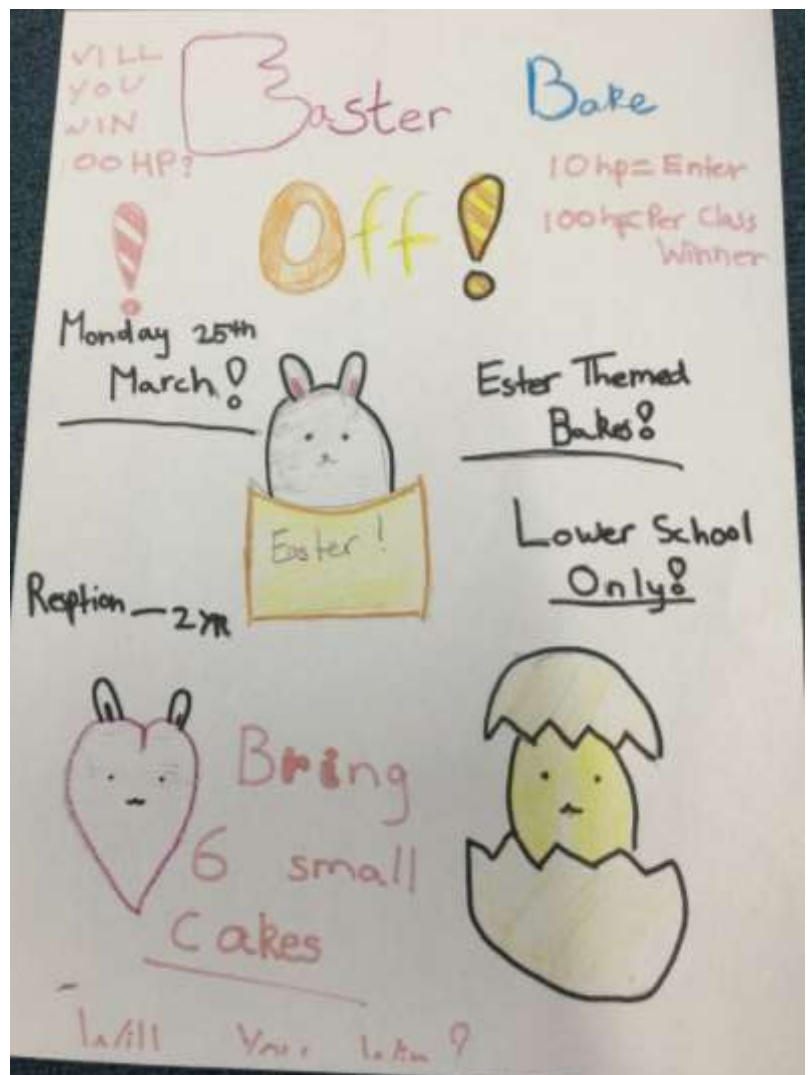 VILL
YOU
WIN
00 HP?
Easter Bake
Off!
10hp = Enter
100hp = Per Class
Winner
!
Monday 25th
March!
Ester Themed
Bakes!
Easter!
Lower School
Only!
Reption — 2 YR
Bring
6 small
Cakes
Will You